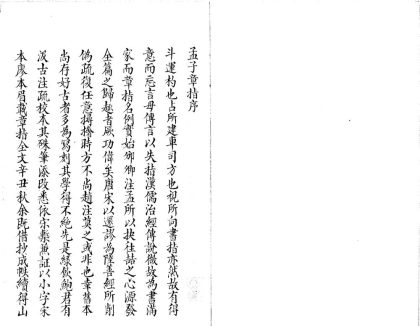 孟子章指序
斗運杓也占所建車司方也視所向書指亦然故有得
意而忘言毋傳言以失指漢儒治經傳說微故為書滿
家而章指名例實始邠卿注孟所以抉往喆之心源發
全篇之歸趣者厥功偉矣唐宋以還謬為隆善經所刪
偽疏復任意撏撦時方不尚趙注莫之或非也幸舊本
尚存好古者多為寫刻其學得不絶先是綠飲鮑君有
汲古注疏校本其殊筆添改悉依宗槧兼証以小字宋
本廖本眉載章指全文辛丑秋余既借抄成帙續得山